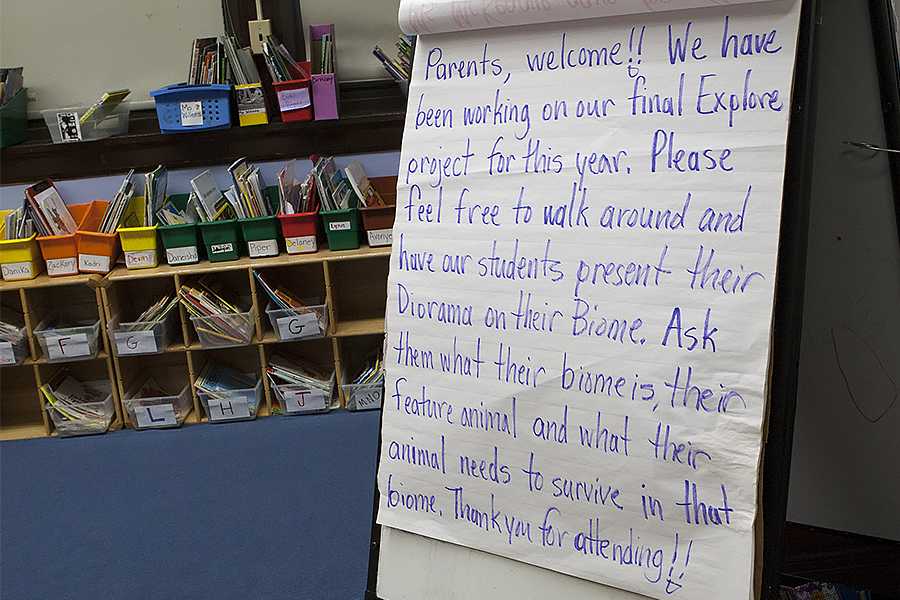 Parents, welcome!! We have
been working on our final Explore
project for this year. Please
feel free to walk around and
have our students present their
Diorama on their Biome. Ask
them what their biome is, their
feature animal and what their
animal needs to survive in that
biome. Thank you for attending!!
Mo
Willems
Danika
Zackory
Kadri
Danasha
Piper
Delaney
F
G
G
L
H
J